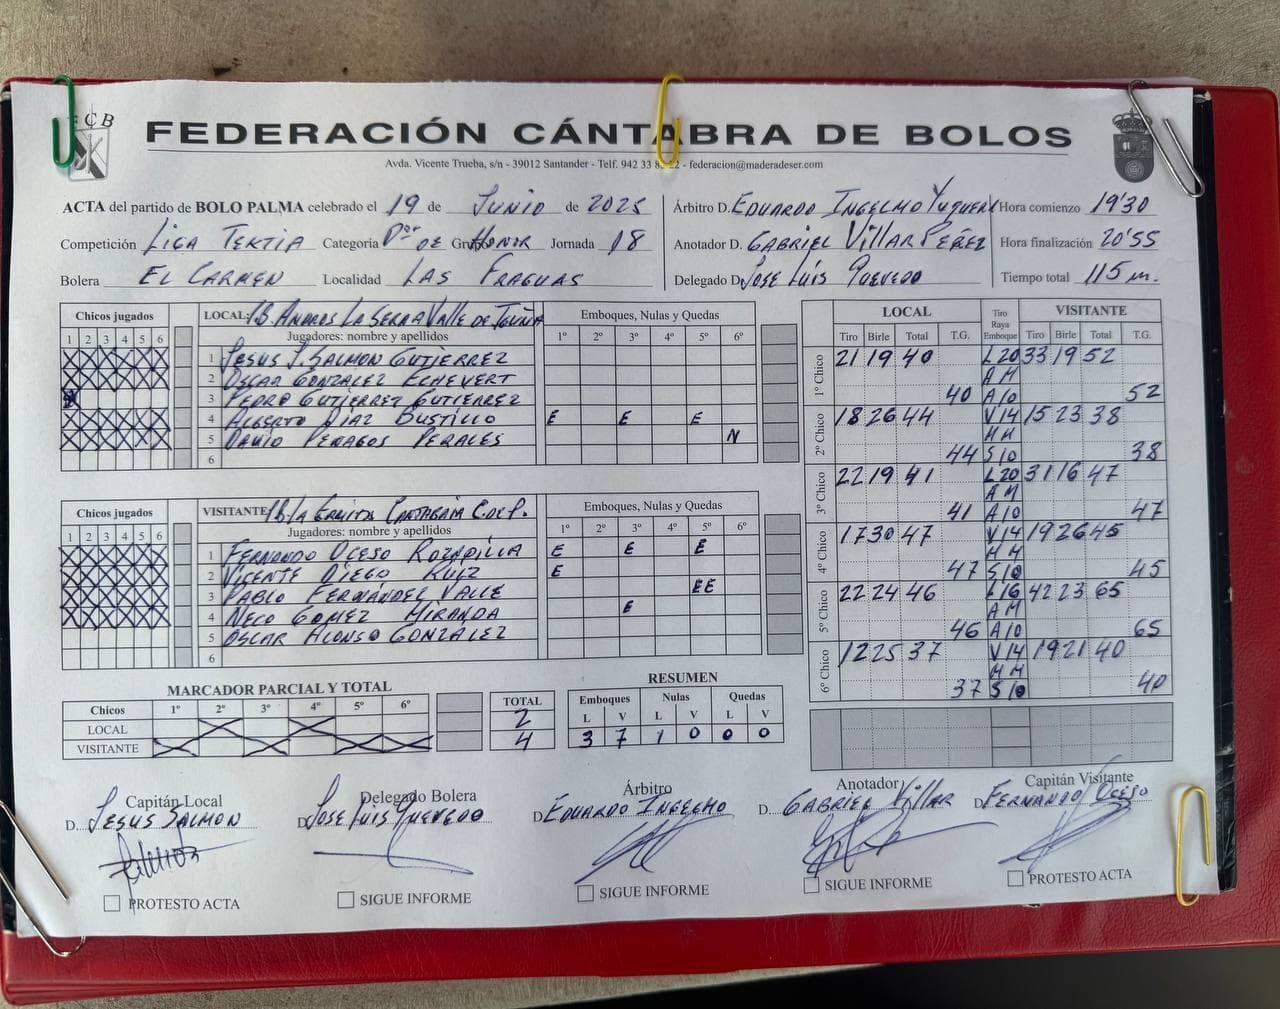 FCB
FEDERACIÓN CÁNTABRA DE BOLOS
Avda. Vicente Trueba, s/n - 39012 Santander - Telf. 942 33 8 22 - federacion@maderadeser.com
ACTA del partido de BOLO PALMA celebrado el 19 de Junio de 2025
Competición LIGA TERTIA Categoría Dor DE Grupo HONOR Jornada 18
Bolera EL CARMEN Localidad LAS FRAGUAS
Árbitro D. EDUARDO INGELMO YUGUERO
Anotador D. GABRIEL VILLAR PÉREZ
Delegado D. JOSE LUÍS QUEVEDO
Hora comienzo 19'30
Hora finalización 20'55
Tiempo total 115 m.
Chicos jugados LOCAL: P.B. ANDROS LA SERRA VALLE DE IGUÑA Emboques, Nulas y Quedas
1 2 3 4 5 6 Jugadores: nombre y apellidos 1º 2º 3º 4º 5º 6º
1 JESUS J. SALMON GUTIERREZ
2 OSCAR GONZALEZ ECHEVERT
3 PEDRO GUTIERREZ GUTIERREZ
4 ALBERTO DIAZ BUSTILLO E E E
5 DAVID PENAGOS PERALES N
6
Chicos jugados VISITANTE P.B. LA ERMITA CANTABRIA C. de P. Emboques, Nulas y Quedas
1 2 3 4 5 6 Jugadores: nombre y apellidos 1º 2º 3º 4º 5º 6º
1 FERNANDO OCEJO E E E
2 VICENTE DIEGO RUIZ E
3 PABLO FERNÁNDEL VALLE EE
4 NECO GOMEZ MIRANDA E
5 OSCAR ALONSO GONZALEZ
6
MARCADOR PARCIAL Y TOTAL
Chicos 1º 2º 3º 4º 5º 6º TOTAL
LOCAL X X 2
VISITANTE X X X X 4
RESUMEN
Emboques Nulas Quedas
L V L V L V
3 7 1 0 0 0
LOCAL Tiro Raya Emboque VISITANTE
Tiro Birle Total T.G. Tiro Birle Total T.G.
1º Chico 21 19 40 L20 33 19 52
AM
40 A10 52
2º Chico 18 26 44 V14 15 23 38
MM
44 S10 38
3º Chico 22 19 41 L20 31 16 47
AM
41 A10 47
4º Chico 17 30 47 V14 19 26 45
MM
47 S10 45
5º Chico 22 24 46 L16 42 23 65
AM
46 A10 65
6º Chico 12 25 37 V14 19 21 40
MM
37 S10 40
Capitán Local Delegado Bolera Árbitro Anotador Capitán Visitante
D. JESUS SALMON D. JOSE LUIS QUEVEDO D. EDUARDO INGELMO D. GABRIEL VILLAR D. FERNANDO OCEJO
PROTESTO ACTA SIGUE INFORME SIGUE INFORME SIGUE INFORME PROTESTO ACTA